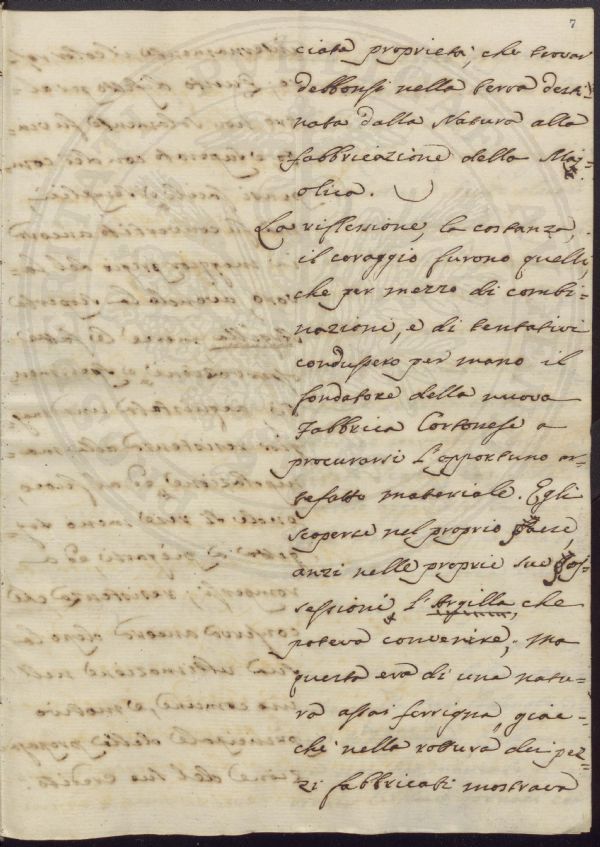 7
ciata proprietà, che trovar
debbonsi nella terra desti-
nata dalla Natura alla
fabbricazione della Maj=
olica.
La riflessione, la costanza,
il coraggio furono quelli,
che per mezzo di combi-
nazioni, e di tentativi
condussero per mano il
fondatore della nuova
Fabbrica Cortonese a
procurarsi l'opportuno ar-
tefatto materiale. Egli
scoperse nel proprio Paese,
anzi nelle proprie sue Pos=
sessioni l'Argilla, che
poteva convenire; ma
questa era di una natu-
ra assai ferrigna, giac-
chè nella rottura dei pez=
zi fabbricati mostrava